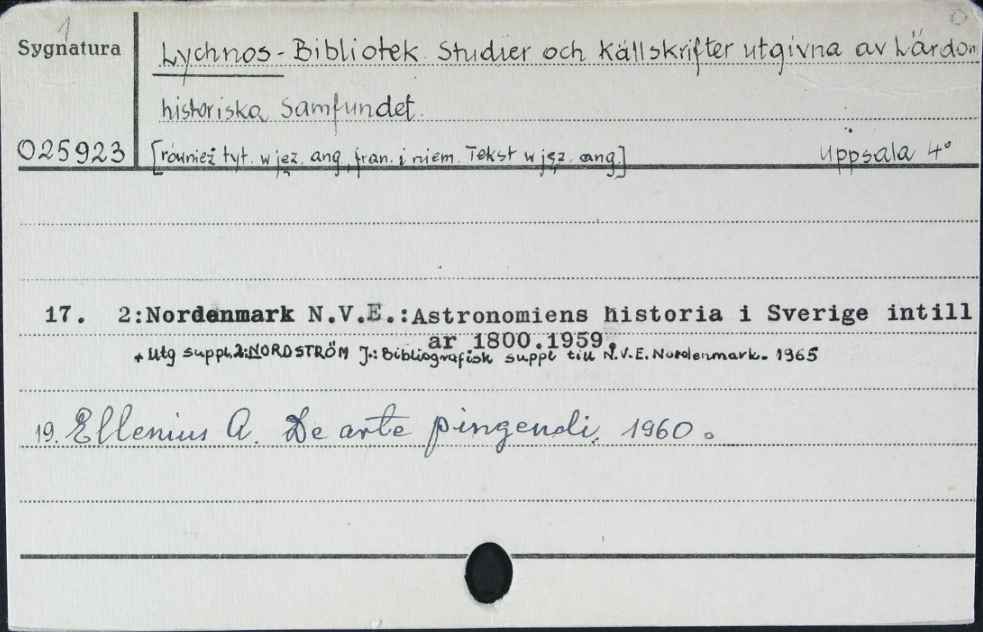 1
Sygnatura
Lychnos-Bibliotek. Studier och Källskrifter utgivna av Lärdom
historiska Samfundet.
025923
[również tyt. w jęz. ang. fran. i niem. Tekst w jęz. ang.] Uppsala 4°
17. 2:Nordenmark N.V.E.:Astronomiens historia i Sverige intill
ar 1800.1959.
+ Utg suppl.2:NORDSTRÖM J.: Bibliografisk suppl till N.V.E. Nordenmark. 1965
19. Ellenius A. De arte pingendi. 1960.